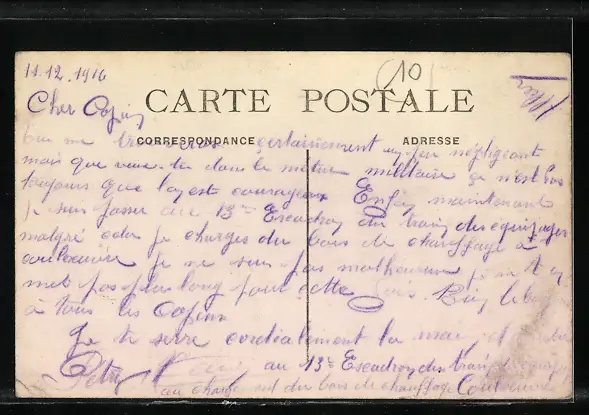 11.12.1916
(10)
Cher Copain
CARTE POSTALE
CORRESPONDANCE
ADRESSE
certainement un peu négligeant
mais que veux-tu dans le métier militaire ça n'est pas
toujours que l'on est courageux Enfin maintenant
je suis passer au 13e Escadron du train des equipages
malgré cela je charges du bois de chauffage à
je ne suis pas malheureux je ne t'en
met pas plus long pour cette fois. Bien le
à tous les Copains
Je te serre cordialement la main et
au 13e Escadron du train
au chargement du bois de chauffage